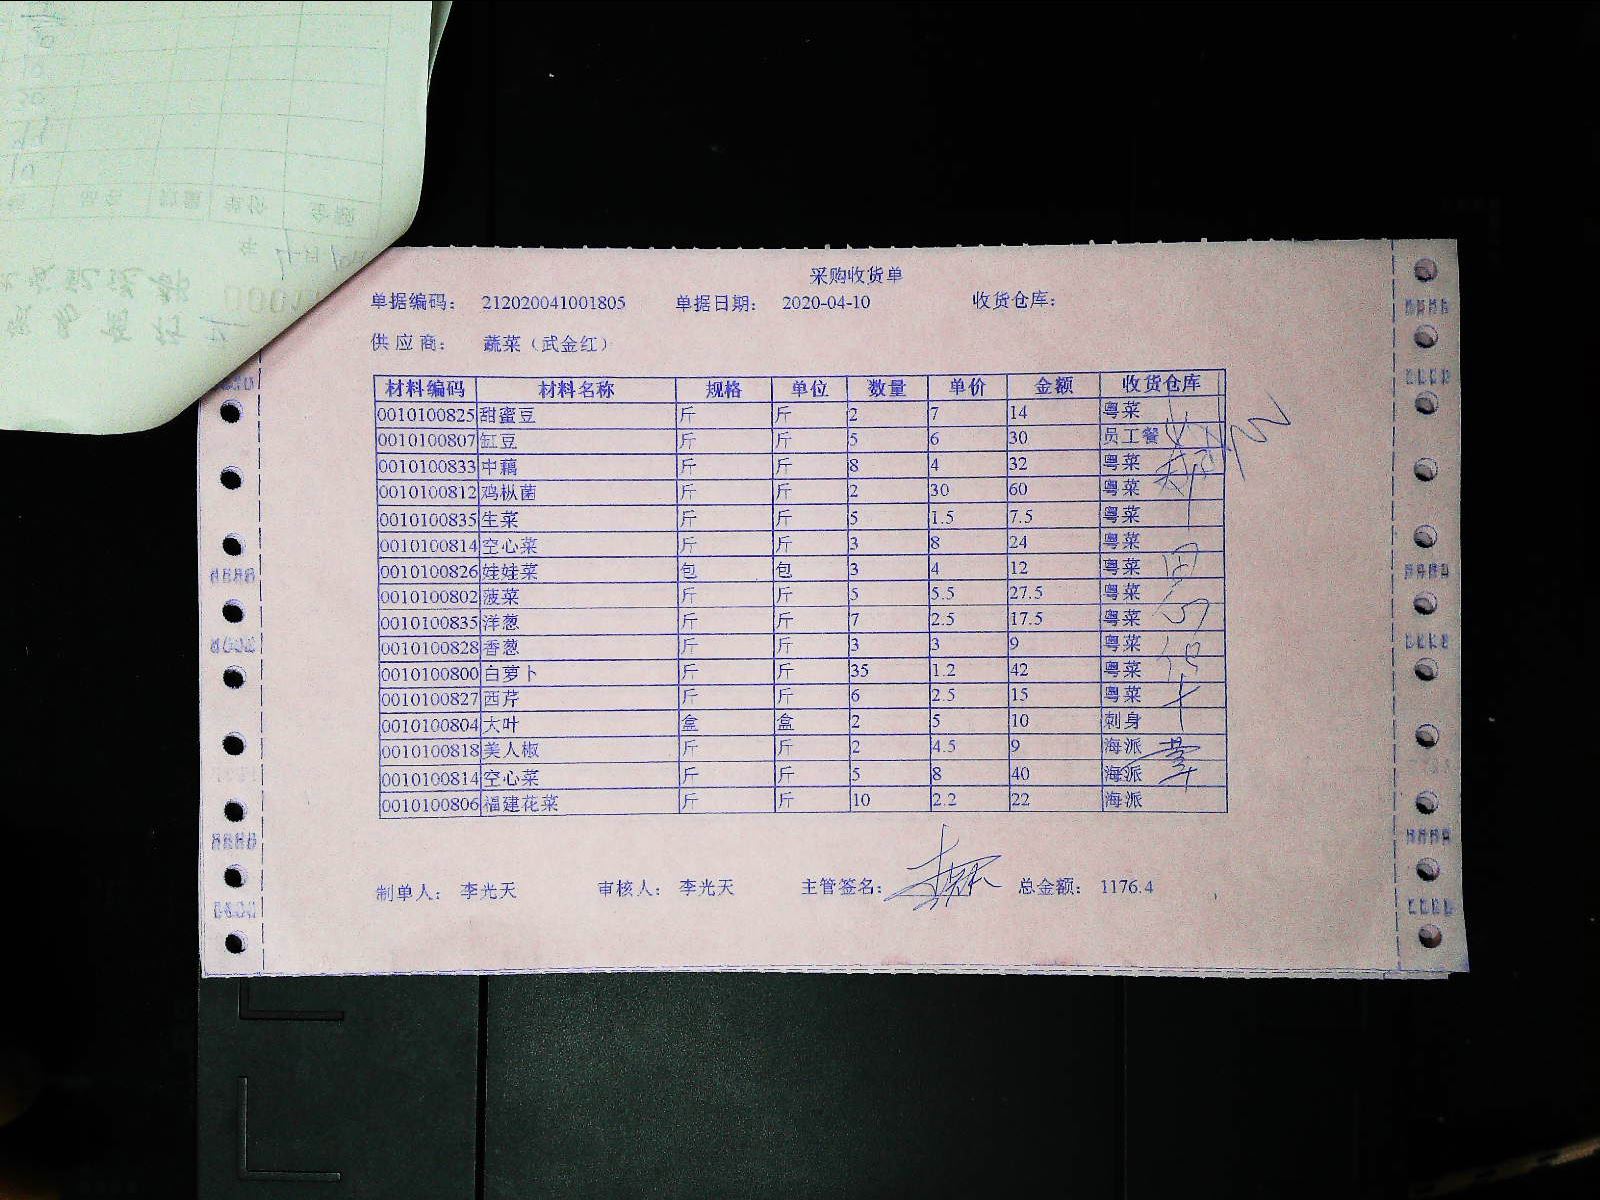 采购收货单
单据编码： 212020041001805 单据日期： 2020-04-10 收货仓库：
供应商： 蔬菜（武金红）
材料编码 材料名称 规格 单位 数量 单价 金额 收货仓库
0010100825 甜蜜豆 斤 斤 2 7 14 粤菜
0010100807 缸豆 斤 斤 5 6 30 员工餐
0010100833 中藕 斤 斤 8 4 32 粤菜
0010100812 鸡枞菌 斤 斤 2 30 60 粤菜
0010100835 生菜 斤 斤 5 1.5 7.5 粤菜
0010100814 空心菜 斤 斤 3 8 24 粤菜
0010100826 娃娃菜 包 包 3 4 12 粤菜
0010100802 菠菜 斤 斤 5 5.5 27.5 粤菜
0010100835 洋葱 斤 斤 7 2.5 17.5 粤菜
0010100828 香葱 斤 斤 3 3 9 粤菜
0010100800 白萝卜 斤 斤 35 1.2 42 粤菜
0010100827 西芹 斤 斤 6 2.5 15 粤菜
0010100804 大叶 盒 盒 2 5 10 刺身
0010100818 美人椒 斤 斤 2 4.5 9 海派
0010100814 空心菜 斤 斤 5 8 40 海派
0010100806 福建花菜 斤 斤 10 2.2 22 海派
制单人： 李光天 审核人： 李光天 主管签名： 总金额： 1176.4